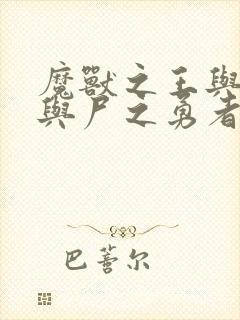 魔獸之王與
與尸之勇者
巴蓍尔